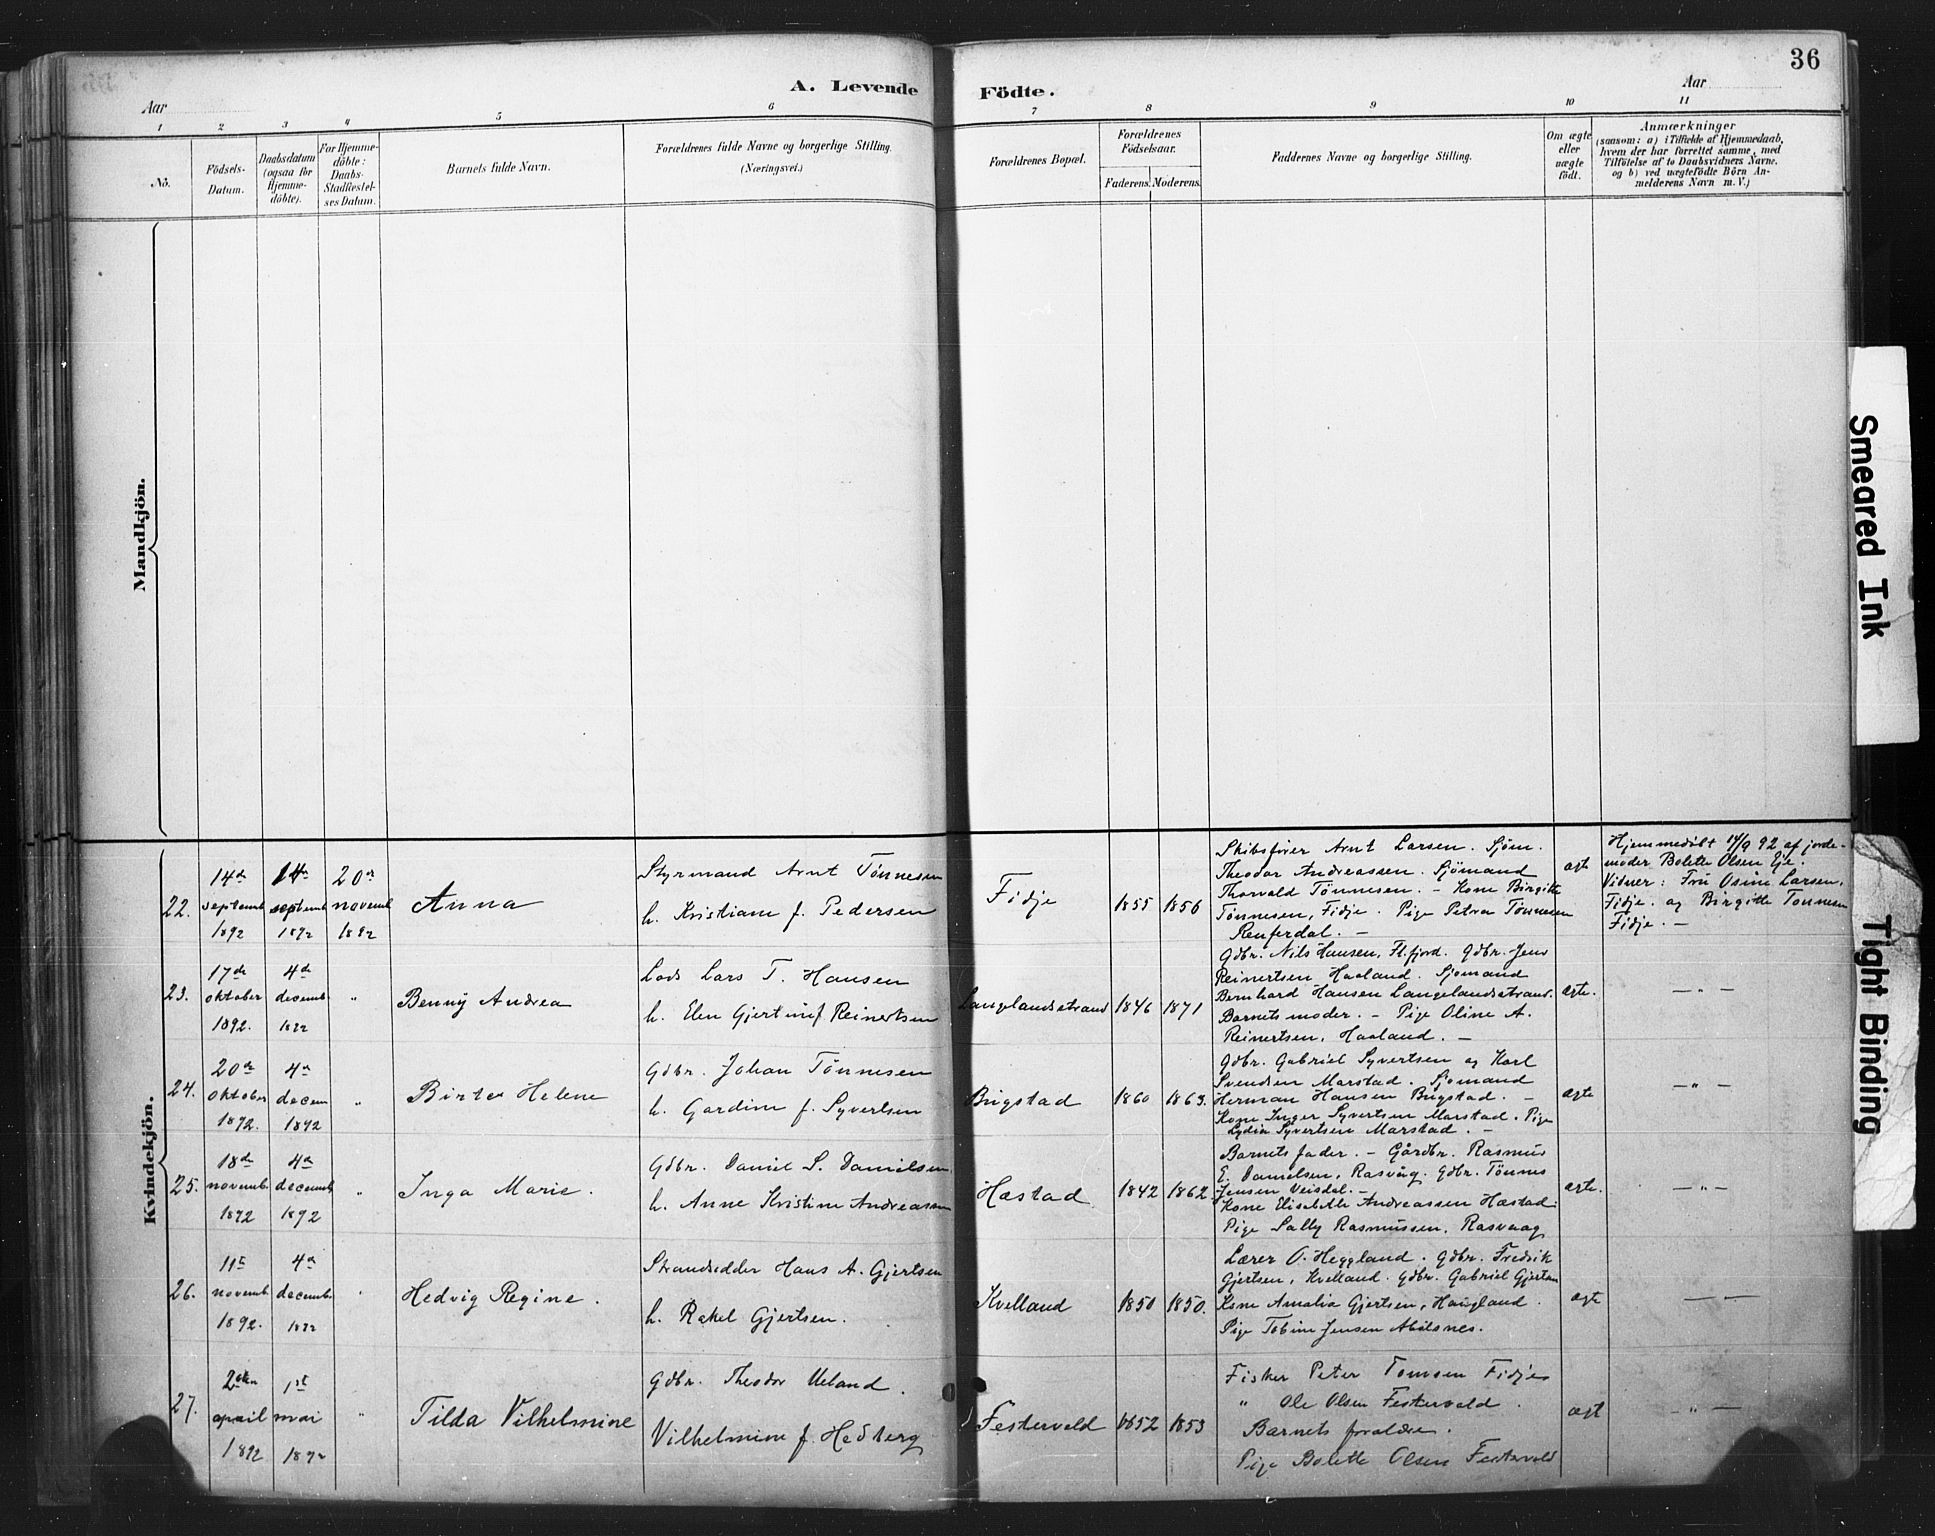 36
A. Levende Födte.
Aar
Aar
1 2 3 4 5 6 7 8 9 10 11
Nö.
Födsels-Datum.
Daabsdatum (ogsaa för Hjemme-döbte).
For Hjemme-döbte: Daabs-Stadfæstel-ses Datum.
Barnets fulde Navn.
Forældrenes fulde Navne og borgerlige Stilling.
(Næringsvei.)
Forældrenes Bopæl.
Forældrenes Födselsaar.
Faderens. Moderens.
Faddernes Navne og borgerlige Stilling.
Om ægte eller uægte födt.
Anmærkninger
(saasom: a) i Tilfælde af Hjemmedaab,
hvem der har forrettet samme, med
Tilföielse af to Daabsvidners Navne,
og b) ved uægtefödte Börn An-
melderens Navn m. V.)
Mandkjön.
Kvindekjön.
22.
14de septemb. 1892
14de septemb 1892
20de novemb 1892
Anna
Styrmand Arnt Tönnesen
h. Kristiane f. Pedersen
Fidje
1855 1856
Skibsförer Arnt Larsen. Sjöm.
Theodor Andreassen. Sjömand
Thorvald Tönnesen. – Kone Birgitte
Tönnesen, Fidje. Pige Petra Tönnesen
Renferdal. –
ægte
Hjemmedöbt 14/9 92 af jorde-
moder Bolete Olsen Eje.
Vidner: Fru Osine Larsen,
Fidje. og Birgitte Tönnesen
Fidje. –
23.
17de oktober 1892.
4de decemb. 1892
"
Benny Andrea
Lods Lars T. Hansen
h. Elen Gjertine f Reinertsen
Langelandsstrand
1846 1871
Gdbr. Nils Hansen, Fl.fjord. Gdbr. Jens
Reinertsen Haaland. Sjömand
Bernhard Hansen Langelandsstrand.
Barnets moder. – Pige Oline A.
Reinertsen, Haaland. –
ægte.
– " –
24.
20de oktober 1892.
4de decem 1892
"
Birte Helene
Gdbr. Johan Tönnesen
h. Gardine f. Syvertsen
Brigstad
1860 1863.
Gdbr. Gabriel Syvertsen og Karl
Svendsen Marstad. Sjömand
Herman Hansen Brigstad. –
Kone Inger Syvertsen Marstad. Pige
Lydia Syvertsen Marstad. –
ægte
– " –
25.
18de novemb. 1892
4de decemb 1892
"
Inga Marie.
Gdbr. Daniel S. Danielsen
h. Anne Kristine Andreassen
Hæstad
1842 1862.
Barnets fader. – Gårdbr. Rasmus
E. Danielsen, Rasvåg. Gdbr. Tönnes
Jensen Veisdal. –
Kone Elisabeth Andreassen Hæstad.
Pige Sally Rasmussen, Rasvaag
ægte.
– " –
26.
11te novemb. 1892.
4de decemb. 1892
"
Hedvig Regine.
Strandsidder Hans A. Gjertsen
h. Rakel Gjertsen.
Kvelland
1850 1850.
Lærer O. Heggland. Gdbr. Fredrik
Gjertsen, Kvelland. Gdbr. Gabriel Gjertsen
Kone Amalia Gjertsen, Haugland.
Pige Tobine Jensen Abelsnes.
ægte
– " –
27.
2den april 1892
1st mai 1892
"
Tilda Vilhelmine
Gdbr. Theodor Ueland.
Vilhelmine f. Hedberg
Festervold
1852 1853
Fisker Peter Tomsen Fidje
" Ole Olsen Festervold.
Barnets forældre.
Pige Bolette Olsen Festervold
ægt
– " –
Smeared Ink
Tight Binding